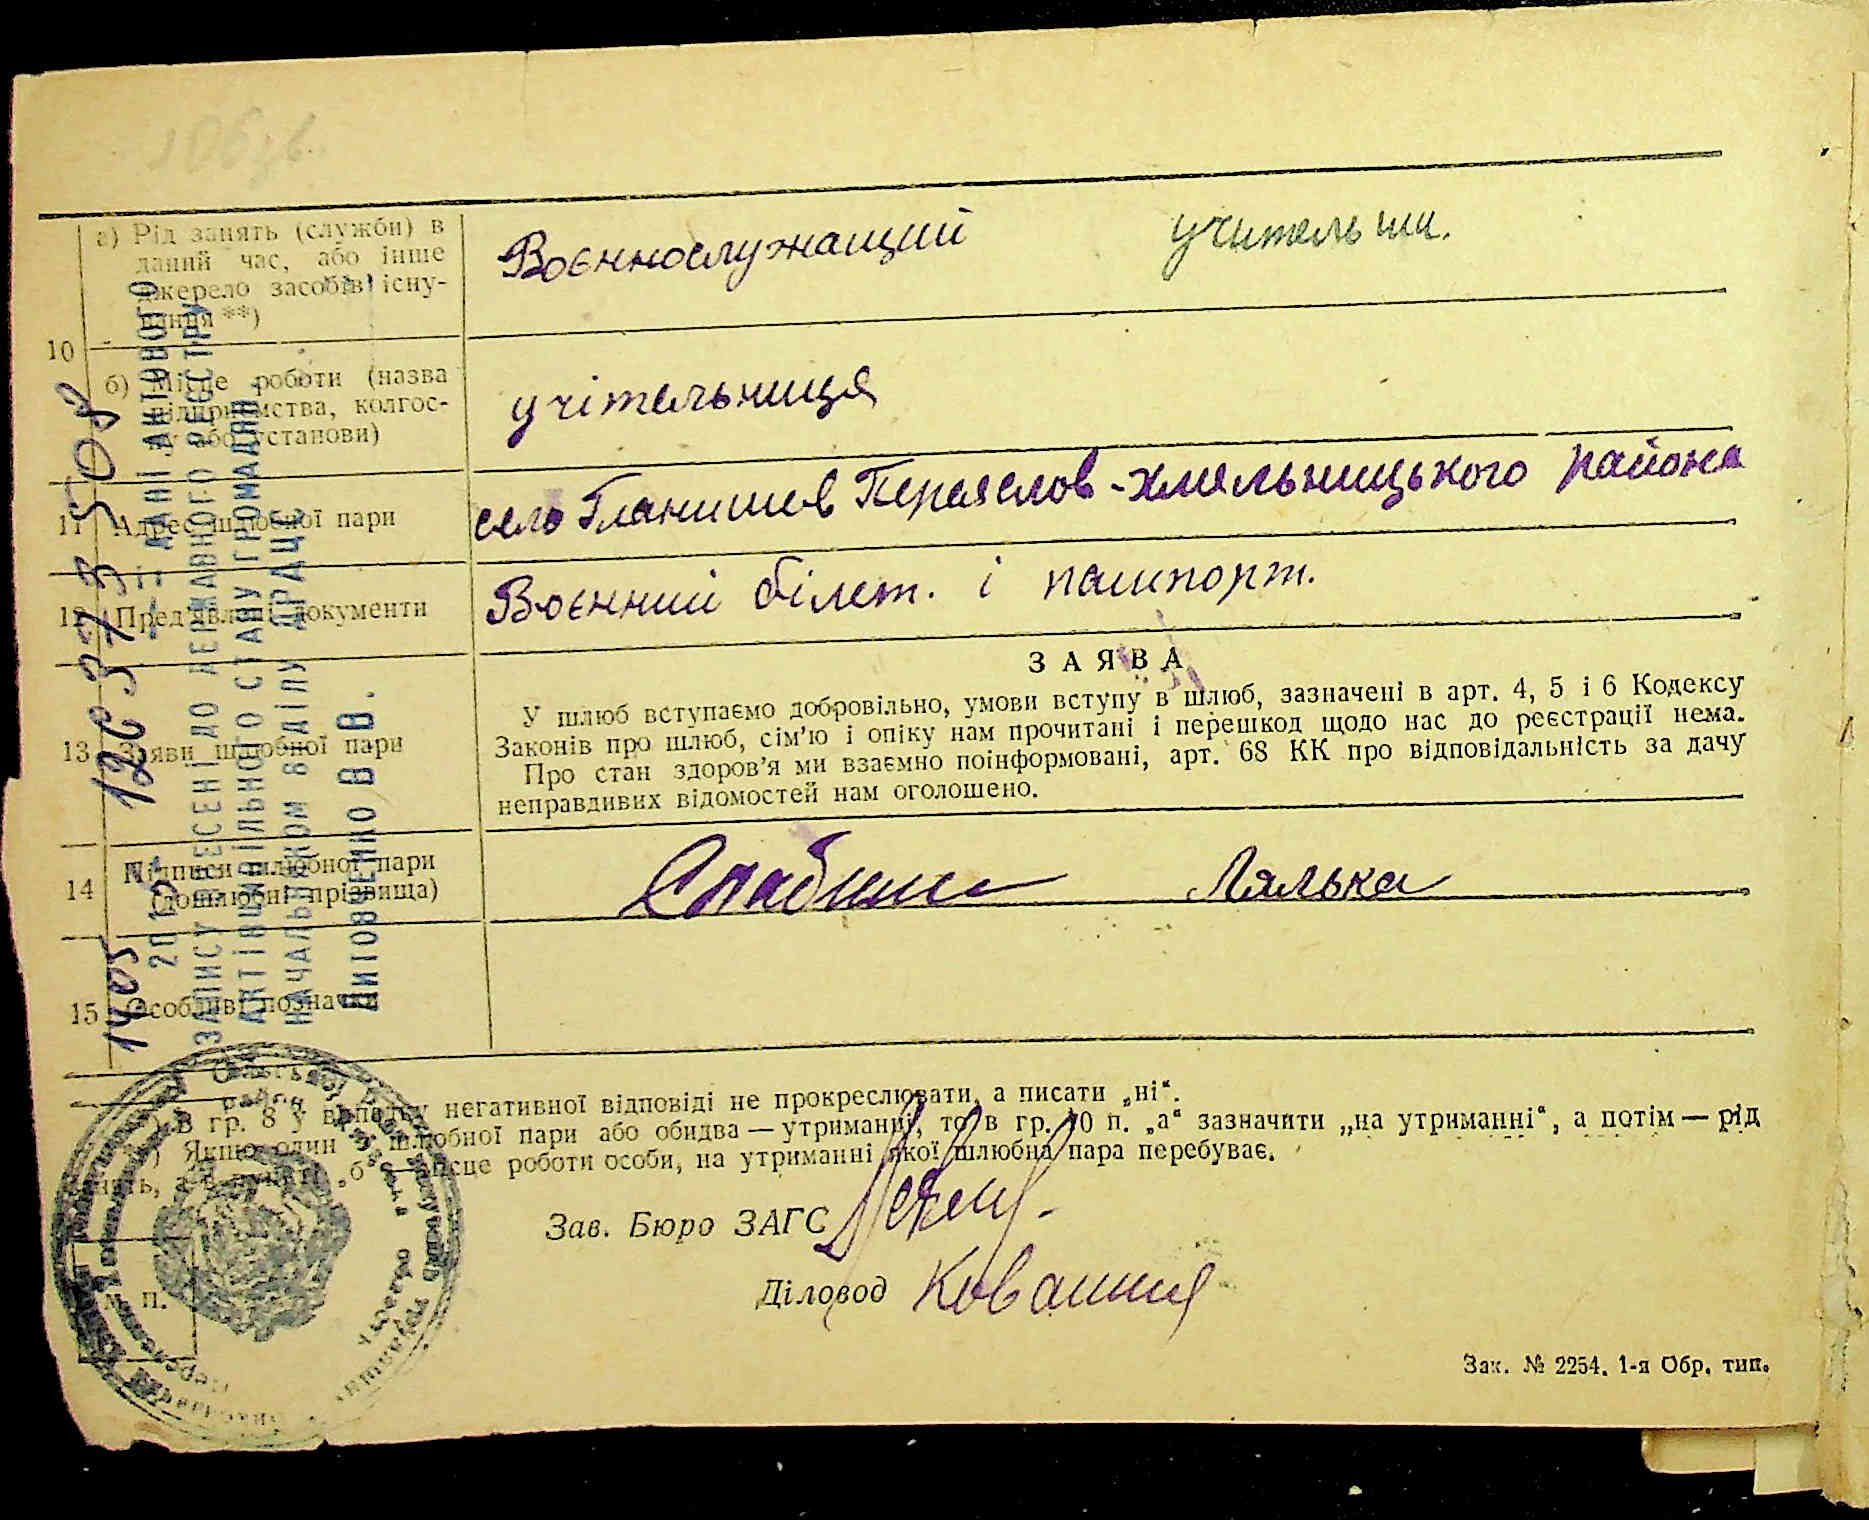 а) Рід занять (служби) в
даний час, або інше
джерело засобів існу-
вання **)
Воєннослужащий учительни.
10
б) Місце роботи (назва
підприємства, колгос-
пу або установи)
учітельниця
11 Адрес шлюбної пари
село Гланишов Переяслов-Хмельницького района
12 Пред'явлені документи
Воєнний білет. і пашпорт.
13 Заяви шлюбної пари
ЗАЯВА
У шлюб вступаємо добровільно, умови вступу в шлюб, зазначені в арт. 4, 5 і 6 Кодексу
Законів про шлюб, сім'ю і опіку нам прочитані і перешкод щодо нас до реєстрації нема.
Про стан здоров'я ми взаємно поінформовані, арт. 68 КК про відповідальність за дачу
неправдивих відомостей нам оголошено.
14 Підписи шлюбної пари
(дошлюбні прізвища)
Лялька
15 Особливі позначки
) В гр. 8 у випадку негативної відповіді не прокреслювати, а писати „ні“.
) Якщо один з шлюбної пари або обидва — утриманці, то в гр. 10 п. „а“ зазначити „на утриманні“, а потім — рід
занять, а в пункті „б“ — місце роботи особи, на утриманні якої шлюбна пара перебуває.
Зав. Бюро ЗАГС
Діловод
М. П.
Зак. № 2254. 1-я Обр. тип.
120373508
1405 2012 ДАНІ АКТОВОГО
ЗАПИСУ ВНЕСЕНІ ДО ДЕРЖАВНОГО РЕЄСТРУ
АКТІВ ЦИВІЛЬНОГО СТАНУ ГРОМАДЯН
НАЧАЛЬНИКОМ ВІДДІЛУ ДРАЦС
ЛИТОВЧЕНКО В.В.